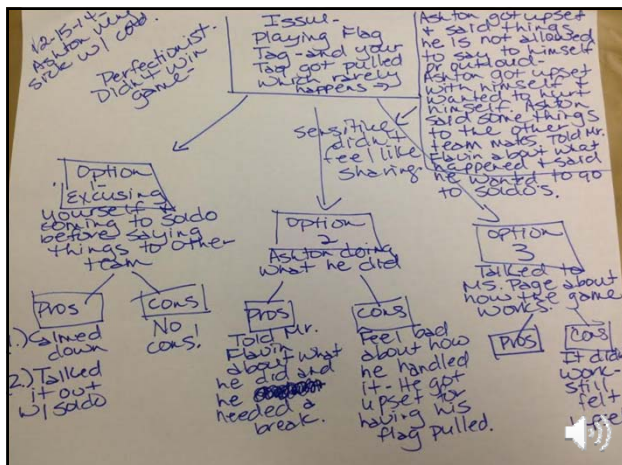 12-15-14-
Ashton very
sick w/ cold.
Perfectionist-
Didn't win
game-
Issue-
Playing Flag
Tag-and your
Tag got pulled
which rarely
happens →
Ashton got upset
& said things
he is not allowed
to say to himself
or outloud-
Ashton got upset
with himself &
wanted to hurt
himself. Ashton
said some things
to the other
team mates. Told Mr.
Flavin about what
happened & said
he wanted to go
to Soldo's.
sensitive
didn't
feel like
sharing
Option
1-
Excusing
yourself &
coming to Soldo
before saying
things to other
team
Pros
1.) Calmed
down
2.) Talked
it out
w/ Soldo
Cons
No
cons!
Option
2
Ashton doing
what he did
Pros
Told Mr.
Flavin
about what
he did and
he
needed a
break.
Cons
Feel bad
about how
he handled
it- He got
upset for
having his
flag pulled.
Option
3
Talked to
Ms. Page about
how the game
works.
Pros
Cons
It didn
work-
still
felt